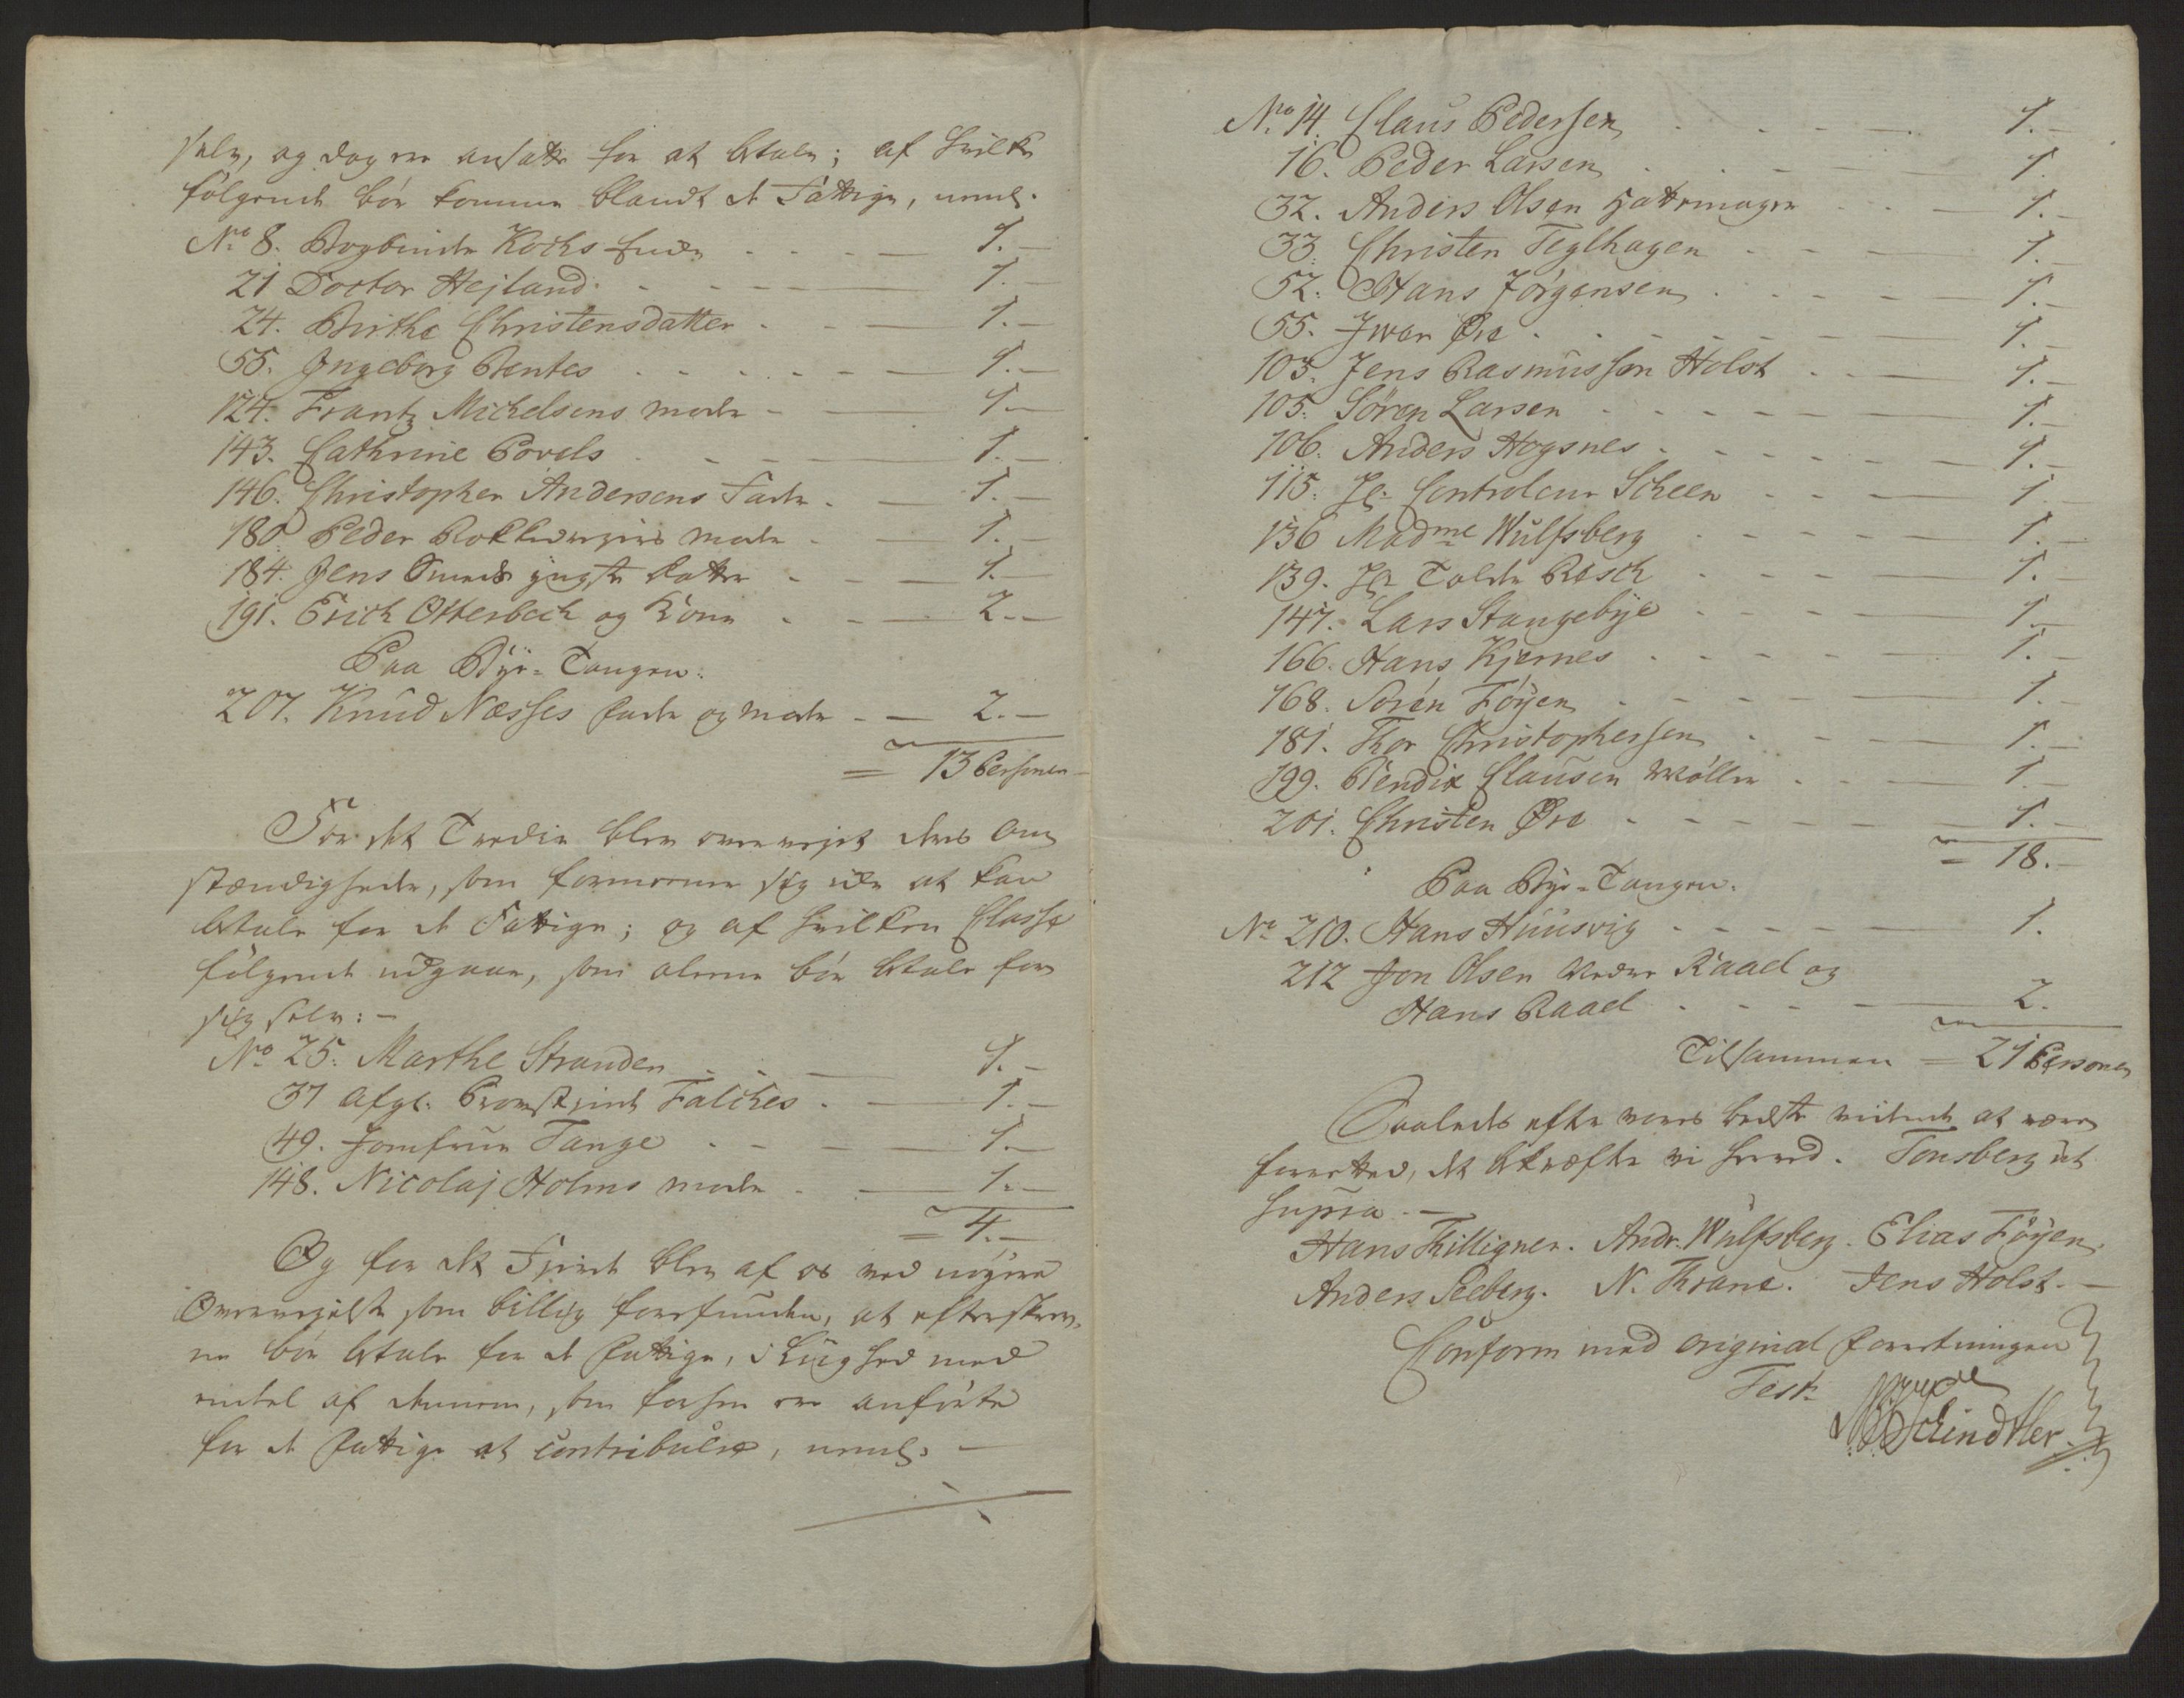 selv, og dog ere ansatte for at betale; af hvilke
følgende bør komme blandt de Fattige, nemlig.
No 8. Bogbinder Kochs Enke - - - 1.-
21 Doctor Hejland - - - 1.-
24. Birthe Christensdatter - - - 1.-
55. Ingeborg Bentes - - - 1.-
124. Frantz Michelsens moder - - 1.-
143. Cathrine Povels - - - 1.-
146. Christopher Andersens Fader - - 1.-
180 Peder moder - - 1.-
184. Jens Smeds yngste datter - - 1.-
191. Erich Otterbech og Kone - - 2.-
Paa Bye-Tangen.
207. Knud Næsses fader og moder - - 2.-
= 13 Personer
For det Tredie blev overvejet deres Om
stændigheder, som formeener sig ikke at kan
betale for de Fattige; og af hvilken Classe
følgende udgaae, som alene bør betale for
sig selv: -
No 25. Marthe Stranden - - - 1.-
37 afgl. Provstinde Falches - - 1.-
49. Jomfrue Tange - - - 1.-
148. Nicolaj Holms moder - - 1.-
= 4.-
Og for det Fjerde blev af os ved nøyere
Overvejelse som billig forefunden, at efterskrev-
ne bør betale for de Fattige, i Liighed med
endel af dennem, som forhen ere anførte
for de Fattige at contribuere, nemlig. -
No 14. Claus Pedersen - - - 1.-
16. Peder Larsen - - - 1.
32. Anders Olsen Hattemager - - 1.-
33. Christen Teglhagen - - - 1.-
52. Hans Jörgensen - - - 1.-
55. Iwer Øre - - - 1.-
103. Jens Rasmussen Holst - - 1.-
105. Sören Larsen - - - 1.-
106. Anders Hogsnes - - - 1.-
115. Hr. Controleur Scheen - - - 1.
136 Madme Wulfsberg - - - 1.-
139. Hr Tolder Rasch - - - 1.
147. Lars Stangebye - - - 1.-
166. Hans Kjernes - - - 1.-
168. Soren Föyen - - - 1.-
181. Thor Christophersen - - - 1.-
199. Bendix Clausen Møller - - 1.-
201. Christen Øre - - - 1.-
= 18.-
Paa Bye-Tangen.
No 210. Hans Huusvig - - - 1.
212 Jon Olsen Raael og
Hans Raael - - - 2.
Tilsammen = 21 Personer
Saaledes efter vores bedste vidende at være
forrettet, det bekræfter vi herved. Tonsberg ut
supra. -
Hans Thilligner. Andr. Wulfsberg. Elias Föyen.
Anders Seeberg. N. Thrane. Jens Holst. -
Conform med original forretningen
Test:
Schindtler